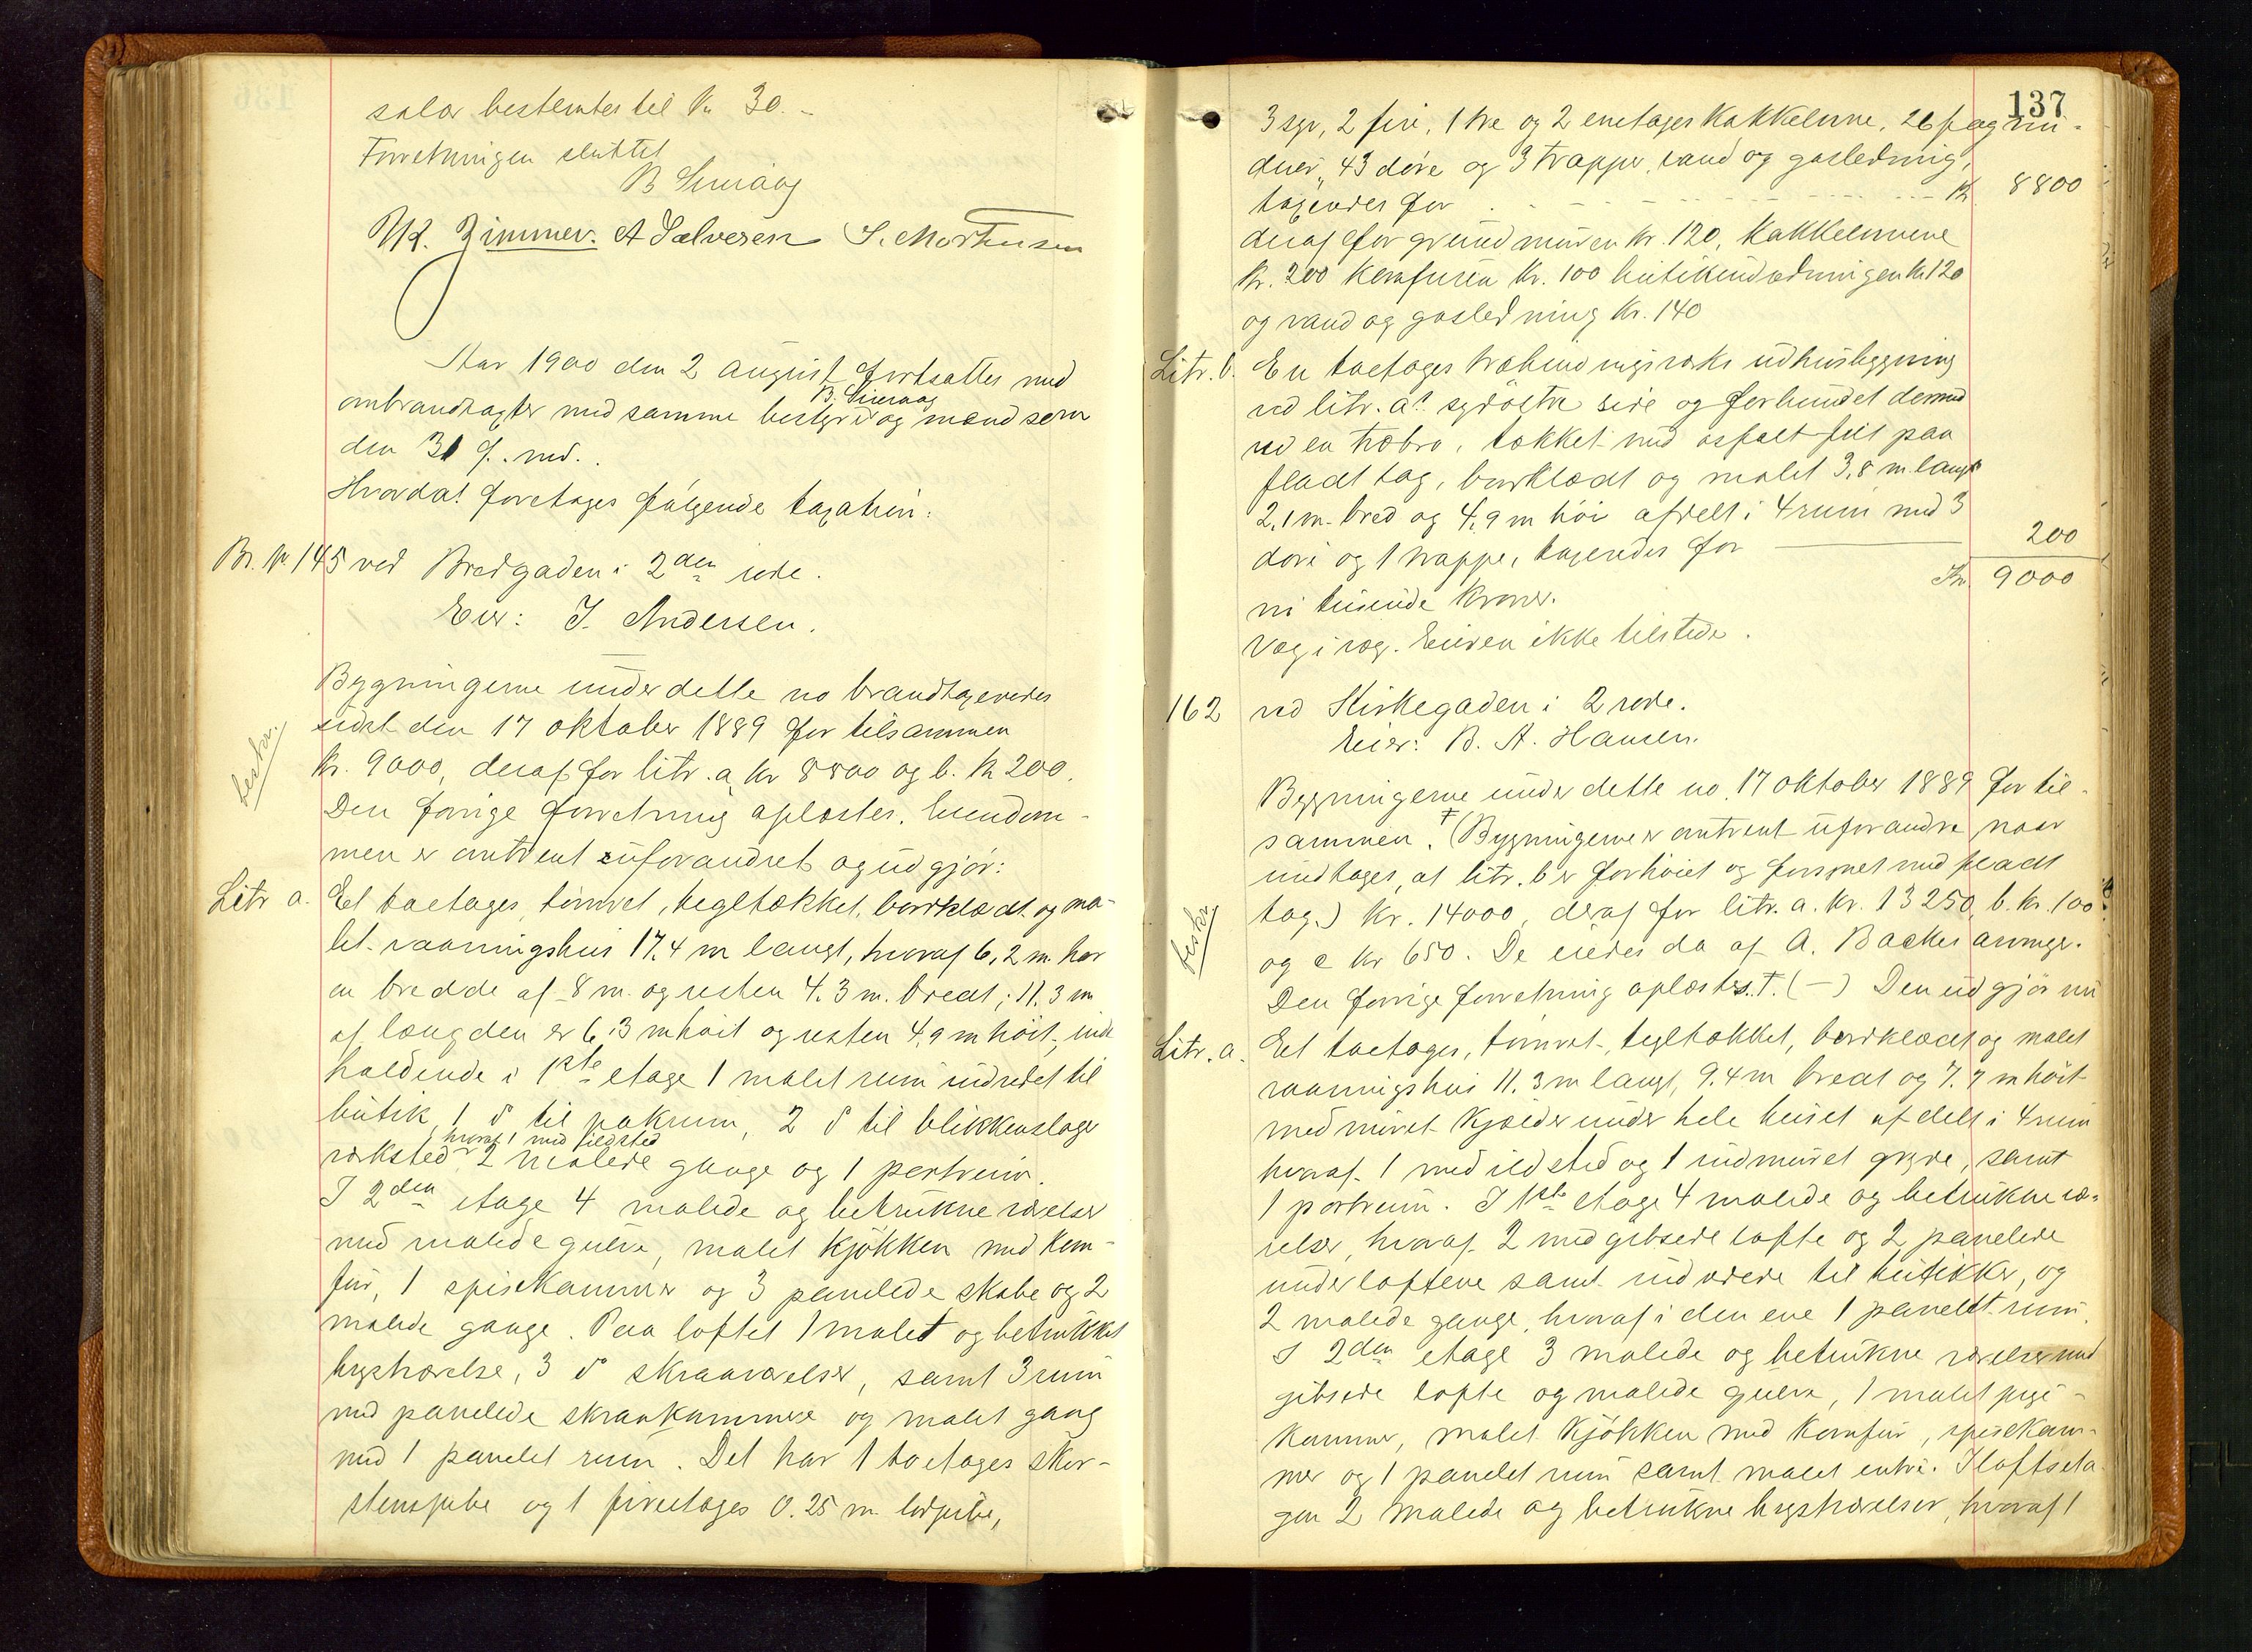 salær bestemtes til Kr 30.-
Forretningen sluttet
B Sueraag
Ths. Zimmer. A Salvesen S. Mortensen
Aar 1900 den 2 august fortsattes med
ombrandtagster med samme bestyrer B. Sueraag og mænd som
den 31 f. md.
Hvorda! foretages følgende taxation:
Br. Nr 145 ved Bredgaden i 2den rode.
Eier: I. Andersen.
beskr.
Bygningerne under dette no brandtaxeredes
sidst den 17 oktober 1889 for tilsammen
Kr. 9000, deraf for litr. a kr 8800 og b. Kr 200.
Den forrige forretning oplæstes. Eiendom-
men er omtrent uforandret og udgjør:
Litr a. Et toetages, tømret, tegltækket, bordklædt og ma-
let vaaningshus 17.4 m langt, hvoraf 6,2 m har
en bredde af 8 m og resten 4.3 m. bredt; 11.3 m
af længden er 6.3 m høit og resten 4.9 m høit, inde
holdende i 1ste etage 1 malet rum indredet til
butik, 1 do til pakrum, 2 do til blikkenslager
verksted, hvoraf 1 med ildsted 2 malede gange og 1 portrum.
I 2den etage 4 malede og betrukne værelser
med malede gulve, malet kjøkken med kom-
fur, 1 spisekammer og 3 panelede skabe og 2
malede gange. Paa loftet 1 malet og betrukket
kvistværelse, 3 do skraaværelser, samt 3 rum
med panelede skraakammere og malet gang
med 1 panelet rum. Det har 1 toetages skor-
stenspibe og 1 fireetages 0.25 m. lodpibe,
137
3 syv, 2 fire, 1 tre og 2 enetages kakkelovne, 26 fag vin-
duer, 43 døre og 3 trapper, vand og gasledning,
taxeredes for - - - Kr. 8800
deraf for grundmuren kr. 120, kakkelovnene
Kr. 200 komfuren Kr. 100 butikindredningen Kr 120
og vand og gasledning Kr. 140
Litr. b. En toetages træbindingsverks udhusbygning
ved litr. a's sydøstre side og forbundet dermed
ved en træbro, tækket med asfalt filt paa
fladt tag, bordklædt og malet 3,8 m langt
2,1 m. bred og 4,9 m høi afdelt i 4 rum med 3
døre og 1 trappe, taxeredes for 200
Kr. 9000
ni tusinde kroner.
Væg i væg. Eieren ikke tilstede.
162 ved Kirkegaden i 2 rode.
Eier: B. A. Hansen.
beskr
Bygningerne under dette no 17 oktober 1889 for til-
sammen. † (Bygningerne er omtrent uforandre, naar
undtages, at litr. b er forhøiet og forsynet med fladt
tag.) Kr. 14000, deraf for litr. a. Kr. 13250, b. kr. 100
og c kr 650. De eiedes da af A. Backer
Den forrige forretning oplæstes. †. (-) Den udgjør nu
Litr. a. Et toetages, tømret, tegltækket, bordklædt og malet
vaaningshus 11.3 m langt, 9.4 m bredt og 7.7 m høit
med muret kjælder under hele huset afdelt i 4 rum
hvoraf 1 med ildsted og 1 indmuret gryde, samt
1 portrum. I 1ste etage 4 malede og betrukne væ-
relser, hvoraf 2 med gibsede lofte og 2 panelede
under loftene samt indredede til butikker, og
2 malede gange, hvoraf i den ene 1 panelet rum.
I 2den etage 3 malede og betrukne værelser med
gibsede lofte og malede gulve, 1 malet pige-
kammer, malet kjøkken med komfur, spisekam-
mer og 1 panelet rum samt malet entré. I loftseta
gen 2 malede og betrukne kvistværelser, hvoraf 1